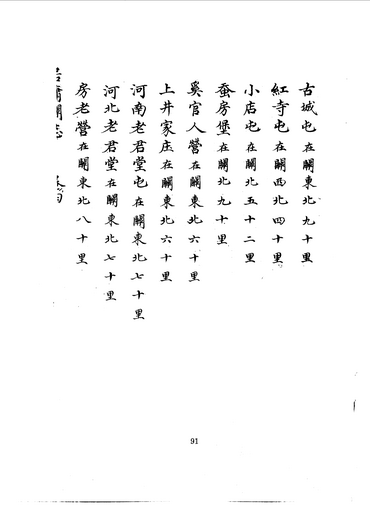 古城屯在關東北九十里
紅寺屯在關西北四十里
小店屯在關北五十二里
蚕房堡在關北九十里
奚官人營在關東北六十里
上井家庄在關東北六十里
河南老君堂屯在關東北七十里
河北老君堂在關東北七十里
房老營在關東北八十里
關志
91